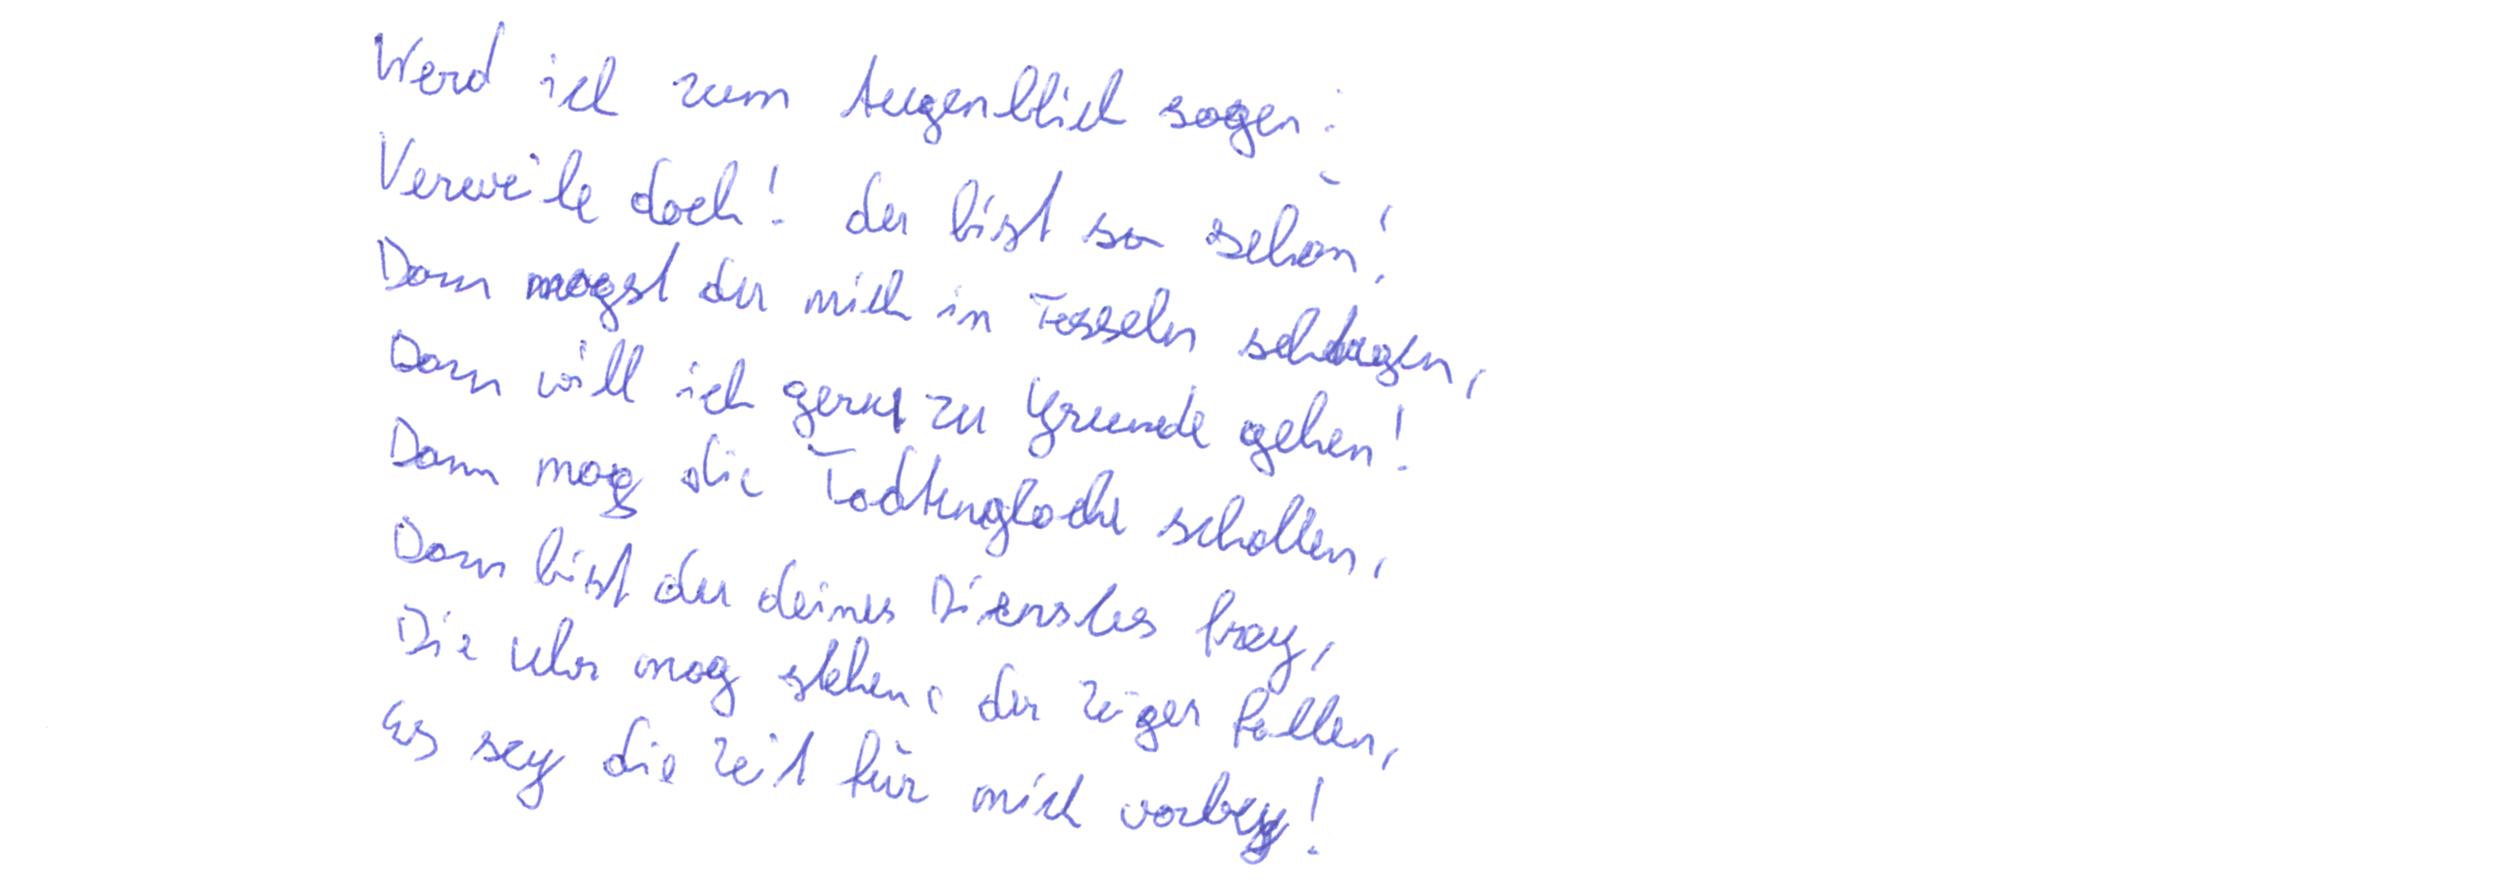 Werd ich zum Augenblick sagen:
Verweile doch! du bist so schön!
Dann magst du mich in Fesseln schlagen,
Dann will ich gern zu Grunde gehen!
Dann mag die Todtenglocke schallen,
Dann bist du deines Dienstes frey,
Die Uhr mag stehen, der Zeiger fallen,
Es sey die Zeit für mich vorbey!